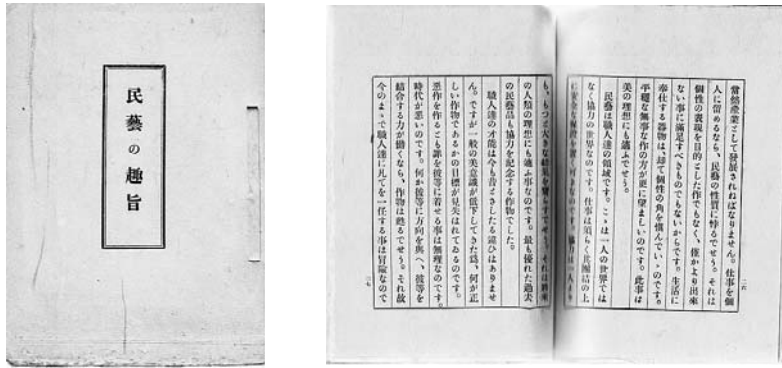 民藝の趣旨
當然產業として發展されねばなりません。仕事を個
人に留めるなら、民藝の性質に悖るでせう。それは
個性の表現を目的とした作でもなく、僅かより出來
ない事に滿足すべきものでもないからです。生活に
奉仕する器物は、却て個性の角を慎んでいゝのです。
平穩な無事な作の方が更に望ましいのです。此事は
美の理想にも適ふでせう。
民藝は職人達の領域です。こゝは一人の世界では
なく協力の世界なのです。仕事は須らく此團結の上
に
二六
も、もつと大きな結果を齎らすでせう。それは將來
の人類の理想にも適ふ事なのです。最も優れた過去
の民藝品も協力を記念する作物でした。
職人達の才能は今も昔とさしたる違ひはありませ
ん。ですが一般の美意識が低下してきた爲、何が正
しい作物であるかの目標が見失はれてゐるのです。
惡作を作るとも罪を彼等に着せる事は無理なのです。
時代が惡いのです。何か彼等に方向を與へ、彼等を
結合する力が働くなら、作物は甦るでせう。それ故
今のまゝで職人達に凡てを一任する事は冒險なので
二七